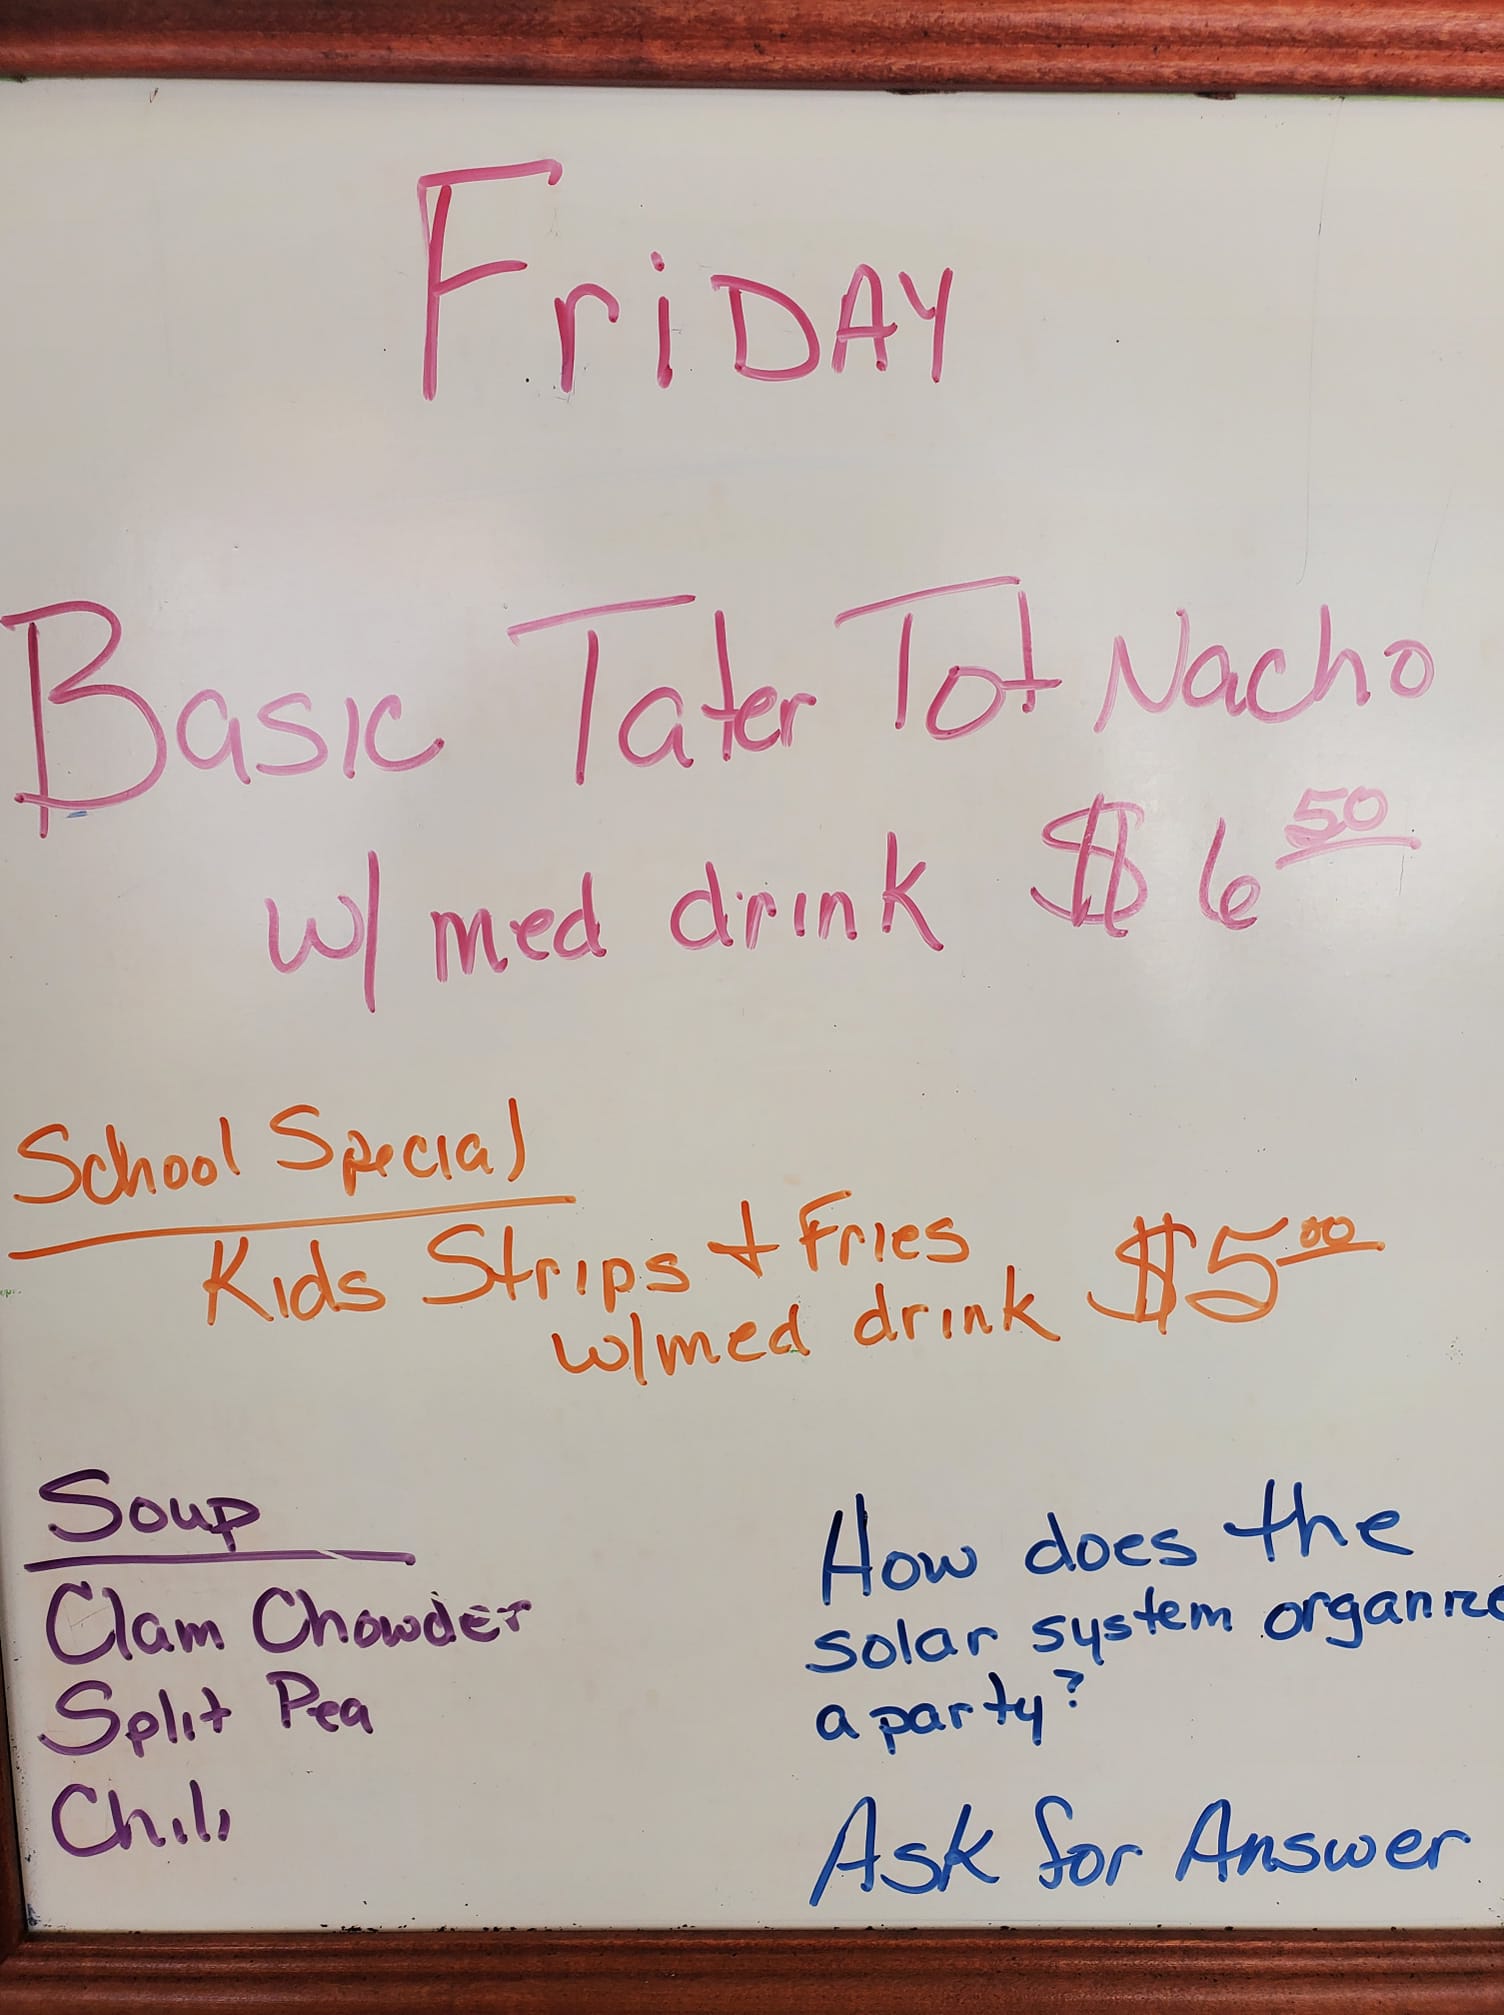 FriDAY
Basic Tater Tot Nacho
w/ med drink $6 50
School Special
Kids Strips + Fries $5 00
w/med drink
Soup
Clam Chowder
Split Pea
Chili
How does the
solar system organize
a party?
Ask for Answer